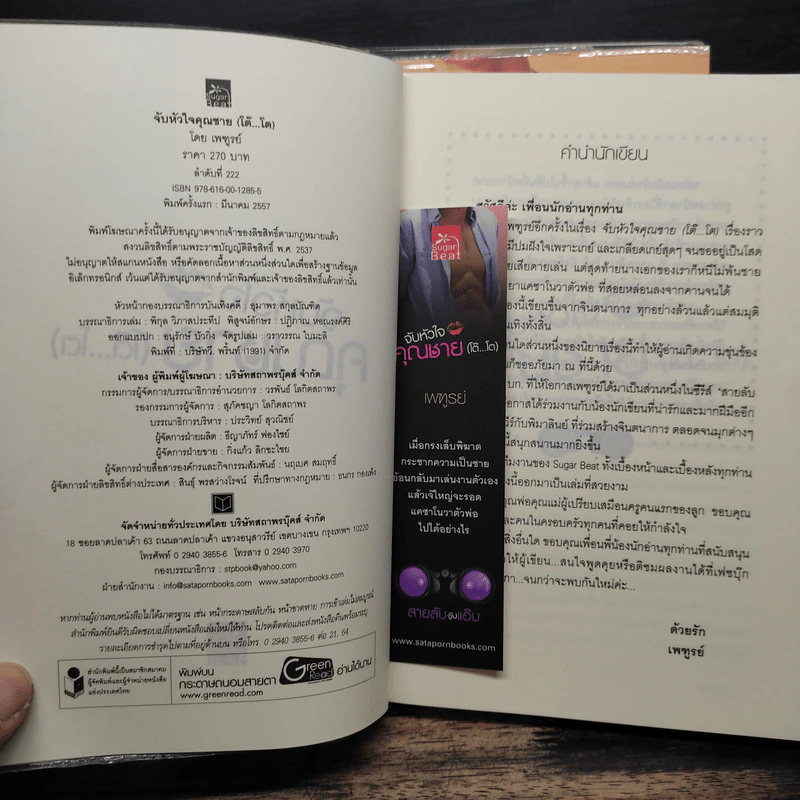 Sugar
Beat
จับหัวใจคุณชาย (โต๊...โต)
โดย เพฑูรย์
ราคา 270 บาท
ลำดับที่ 222
ISBN 978-616-00-1285-5
พิมพ์ครั้งแรก : มีนาคม 2557
พิมพ์โฆษณาครั้งนี้ได้รับอนุญาตจากเจ้าของลิขสิทธิ์ตามกฎหมายแล้ว
สงวนลิขสิทธิ์ตามพระราชบัญญัติลิขสิทธิ์ พ.ศ. 2537
ไม่อนุญาตให้สแกนหนังสือ หรือคัดลอกเนื้อหาส่วนหนึ่งส่วนใดเพื่อสร้างฐานข้อมูล
อิเล็กทรอนิกส์ เว้นแต่ได้รับอนุญาตจากสำนักพิมพ์และเจ้าของลิขสิทธิ์แล้วเท่านั้น
หัวหน้ากองบรรณาธิการบันเทิงคดี : อุมาพร สกุลบัณฑิต
บรรณาธิการเล่ม : พิกุล วิภาสประทีป พิสูจน์อักษร : ปฏิภาณ หอณรงค์ศิริ
ออกแบบปก : อนุรักษ์ บัวกิ่ง จัดรูปเล่ม : วราวรรณ ใบมะลิ
พิมพ์ที่ : บริษัทวี. พริ้นท์ (1991) จำกัด
เจ้าของ ผู้พิมพ์ผู้โฆษณา : บริษัทสถาพรบุ๊คส์ จำกัด
กรรมการผู้จัดการ/บรรณาธิการอำนวยการ : วรพันธ์ โลกิตสถาพร
รองกรรมการผู้จัดการ : สุภัคชญา โลกิตสถาพร
บรรณาธิการบริหาร : ประวิทย์ สุวณิชย์
ผู้จัดการฝ่ายผลิต : ธีญาภัทร์ ฟองไชย์
ผู้จัดการฝ่ายขาย : กิ่งแก้ว ลิกขะไชย
ผู้จัดการฝ่ายสื่อสารองค์กรและกิจกรรมสัมพันธ์ : นฤเบศ สมฤทธิ์
ผู้จัดการฝ่ายลิขสิทธิ์ต่างประเทศ : สินธุ์ พรสว่างโรจน์ ที่ปรึกษาทางกฎหมาย : ธนกร กองเพ็ง
จัดจำหน่ายทั่วประเทศโดย บริษัทสถาพรบุ๊คส์ จำกัด
18 ซอยลาดปลาเค้า 63 ถนนลาดปลาเค้า แขวงอนุสาวรีย์ เขตบางเขน กรุงเทพฯ 10220
โทรศัพท์ 0 2940 3855-6 โทรสาร 0 2940 3970
กองบรรณาธิการ : stpbook@yahoo.com
ฝ่ายสำนักงาน : info@satapornbooks.com www.satapornbooks.com
หากท่านผู้อ่านพบหนังสือไม่ได้มาตรฐาน เช่น หน้ากระดาษสลับกัน หน้าขาดหาย การเข้าเล่มไม่สมบูรณ์
สำนักพิมพ์ยินดีรับผิดชอบเปลี่ยนหนังสือเล่มใหม่ให้ท่าน โปรดติดต่อและส่งหนังสือคืนพร้อมระบุ
รายละเอียดการชำรุดไปตามที่อยู่ด้านบน หรือโทร. 0 2940 3855-6 ต่อ 21, 54
สำนักพิมพ์นี้เป็นสมาชิกสมาคม
ผู้จัดพิมพ์และผู้จำหน่ายหนังสือ
แห่งประเทศไทย
พิมพ์บน
กระดาษถนอมสายตา
www.greenread.com
Green
Read
อ่านได้นาน
Sugar
Beat
จับหัวใจ
คุณชาย (โต๊...โต)
เพฑูรย์
เมื่อกรงเล็บพิฆาต
กระชากความเป็นชาย
ย้อนกลับมาเล่นงานตัวเอง
แล้วเจ๊ใหญ่จะรอด
แคซาโนวาตัวพ่อ
ไปได้อย่างไร
สายลับจับแอ๊บ
www.satapornbooks.com
คำนำนักเขียน
สวัสดีค่ะ เพื่อนนักอ่านทุกท่าน
เพฑูรย์อีกครั้งในเรื่อง จับหัวใจคุณชาย (โต๊...โต) เรื่องราว
มีปมฝังใจเพราะเกย์ และเกลียดเกย์สุดๆ จนขออยู่เป็นโสด
เสียดายเล่น แต่สุดท้ายนางเอกของเราก็หนีไม่พ้นชาย
แคซาโนวาตัวพ่อ ที่สอยหล่อนลงจากคานจนได้
นี้เขียนขึ้นจากจินตนาการ ทุกอย่างล้วนแต่สมมุติ
เทิงทั้งสิ้น
ใดส่วนหนึ่งของนิยายเรื่องนี้ทำให้ผู้อ่านเกิดความขุ่นข้อง
ก็ขออภัยมา ณ ที่นี้ด้วย
บก. ที่ให้โอกาสเพฑูรย์ได้มาเป็นส่วนหนึ่งในซีรีส์ “สายลับ
โอกาสได้ร่วมงานกับน้องนักเขียนที่น่ารักและมากฝีมืออีก
วีร์กับพิมาลินย์ ที่ร่วมสร้างจินตนาการ ตลอดจนมุกต่างๆ
นี้สนุกสนานมากยิ่งขึ้น
มงานของ Sugar Beat ทั้งเบื้องหน้าและเบื้องหลังทุกท่าน
นี้ออกมาเป็นเล่มที่สวยงาม
คุณพ่อคุณแม่ผู้เปรียบเสมือนครูคนแรกของลูก ขอบคุณ
และคนในครอบครัวทุกคนที่คอยให้กำลังใจ
สิ่งอื่นใด ขอบคุณเพื่อนพี่น้องนักอ่านทุกท่านที่สนับสนุน
ให้ผู้เขียน...สนใจพูดคุยหรือติชมผลงานได้ที่เฟซบุ๊ก
กา...จนกว่าจะพบกันใหม่ค่ะ...
ด้วยรัก
เพฑูรย์